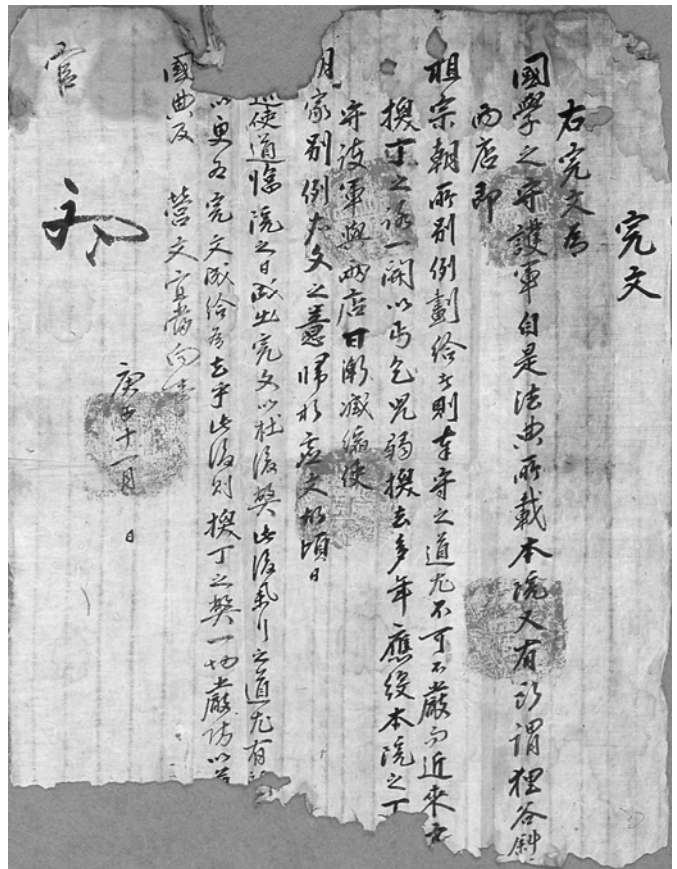 完文
右完文爲
國學之守護軍自是法典所載本院又有所謂狸谷斜
兩店即
祖宗朝所別例劃給者則奉守之道尤不可不嚴而近來
換丁之路一開以丐乞兒弱換去多年應役本院之丁
守護軍與兩店日漸減縮使
家別例大文之意歸於虛文故頃日
巡使道 院之日成出完文以杜後弊此後奉行之道尤有
以更爲完文成給爲去乎此後則換丁之弊一切嚴防以
國典及 營文宜當向事
庚 十一月 日
官